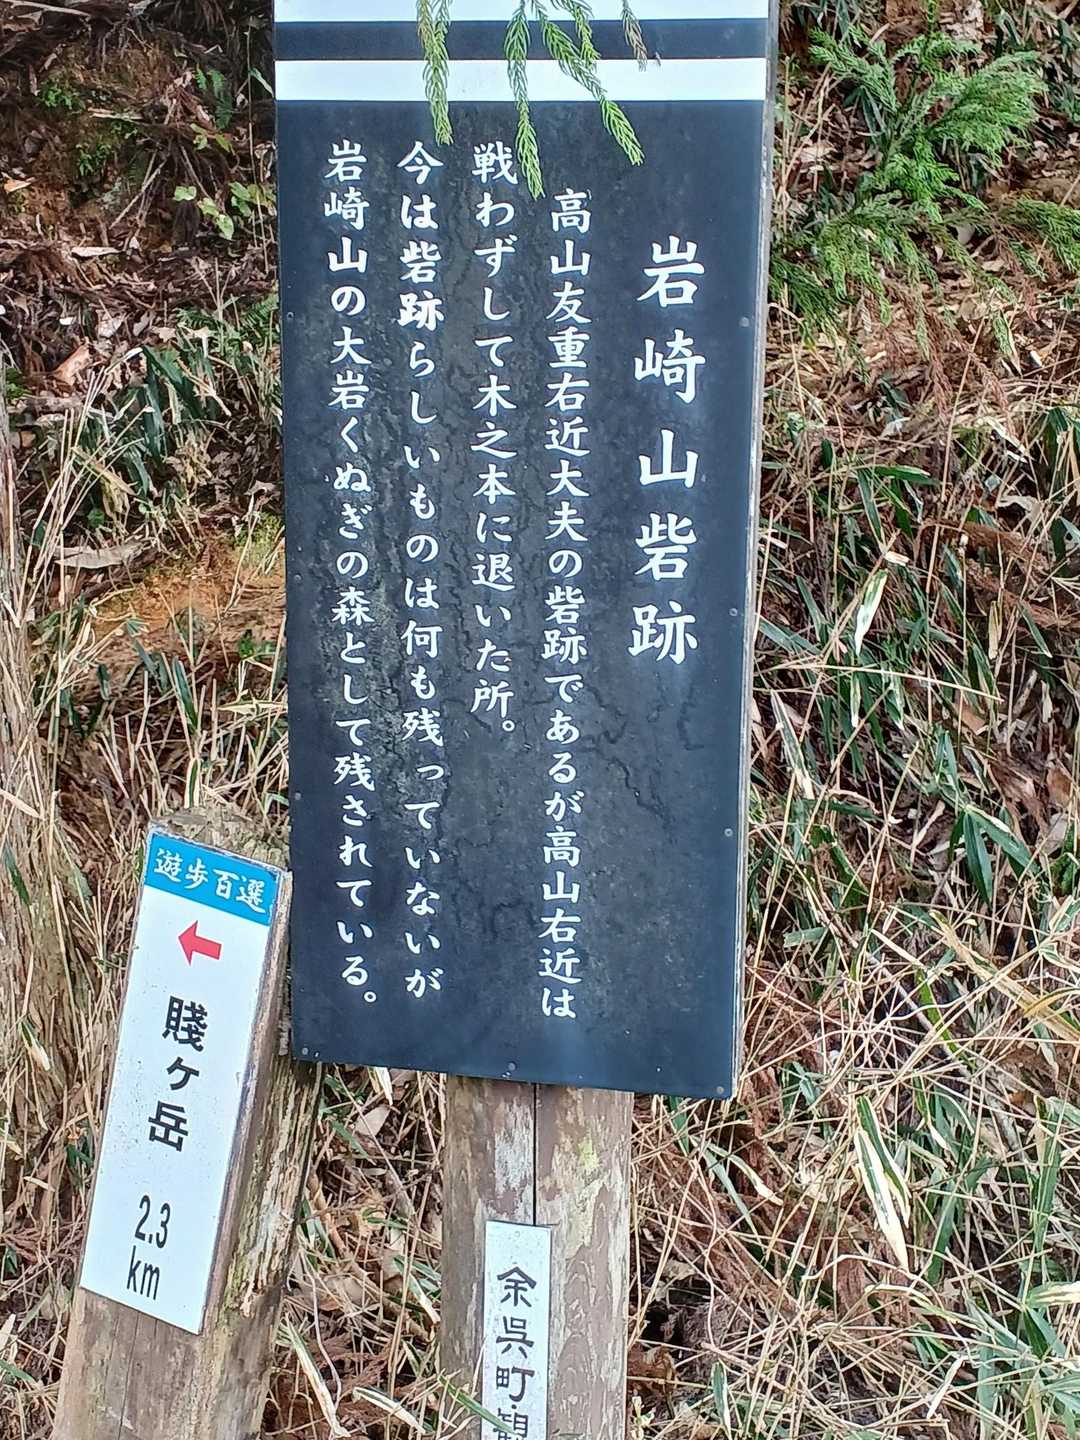 岩崎山砦跡
高山友重右近大夫の砦跡であるが高山右近は
戦わずして木之本に退いた所。
今は砦跡らしいものは何も残っていないが
岩崎山の大岩くぬぎの森として残されている。
遊歩百選
賤ヶ岳
2.3
km
余呉町・観